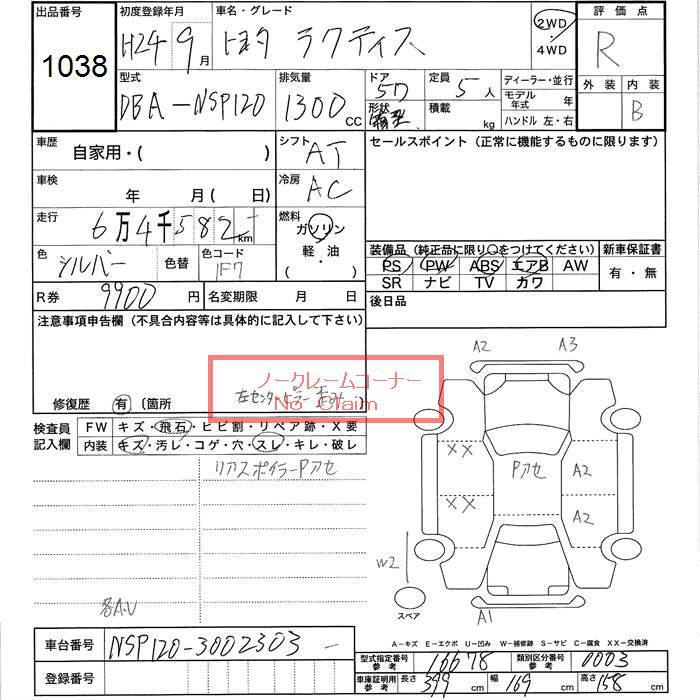 出品番号 初度登録年月 車名・グレード 評価点
1038 H24 9月 トヨタ ラクティス 2WD・4WD R
型式 排気量 ドア 定員 ディーラー・並行 外装 内装
DBA-NSP120 1300cc 5D 5人 モデル年式 年 B
形状 積載 kg ハンドル 左・右
車歴 自家用・( ) シフト AT セールスポイント(正常に機能するものに限ります)
車検 年 月( 日) 冷房 AC
走行 6万4千582km 燃料 ガソリン・軽油
色 シルバー 色替 色コード 1F7 ( )
装備品(純正品に限り○をつけてください) 新車保証書
PS PW ABS エアB AW 有・無
SR ナビ TV カワ
R券 9900円 名変期限 月 日 後日品
注意事項申告欄(不具合内容等は具体的に記入して下さい)
A2 A3
ノークレームコーナー
No Claim
修復歴 有 〔箇所 左センターピラー
検査員記入欄 FW キズ・飛石・ヒビ割・リペア跡・X要
内装 キズ・汚レ・コゲ・穴・スレ・キレ・破レ
リアスポイラーPアセ
XX Pアセ A2
XX A2
W2
スペア A1
各A.U
A-キズ E-エクボ U-凹み W-補修跡 S-サビ C-腐食 XX-交換済
車台番号 NSP120-3002303
型式指定番号参考 16678 類別区分番号参考 0003
登録番号
車庫証明用参考 長さ 399cm 幅 169cm 高さ 158cm